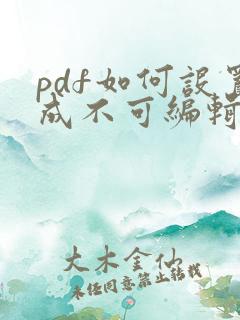 pdf如何设置
成不可编辑
大木金仙
未经同意禁止转载